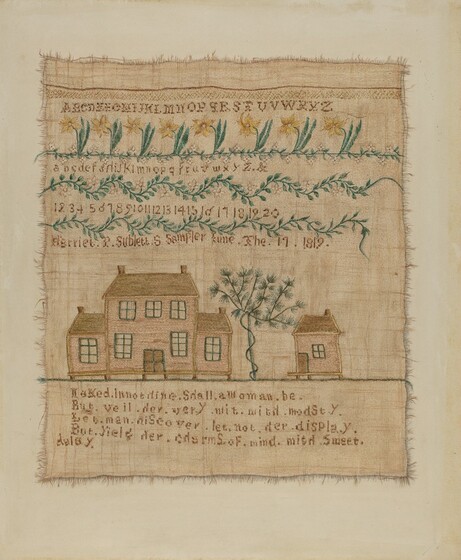 ABCDEFGHIJKLMNOPQRSTUVWXYZ
abcdefghijklmnopqrstuvwxyz.&
1 2 3 4 5 6 7 8 9 10 11 12 13 14 15 16 17 18 19 20
Harriet. P. Sublett. S Sampler June. The. 17. 1819.
Naked. In not ding. Sdall. a Woman. be.
But. veil. der. very. wit. witd. modSty.
Let. man. diScover. let. not. der. diSplay.
But. yield. der. cdarmS. of. mind. witd. Sweet.
delay